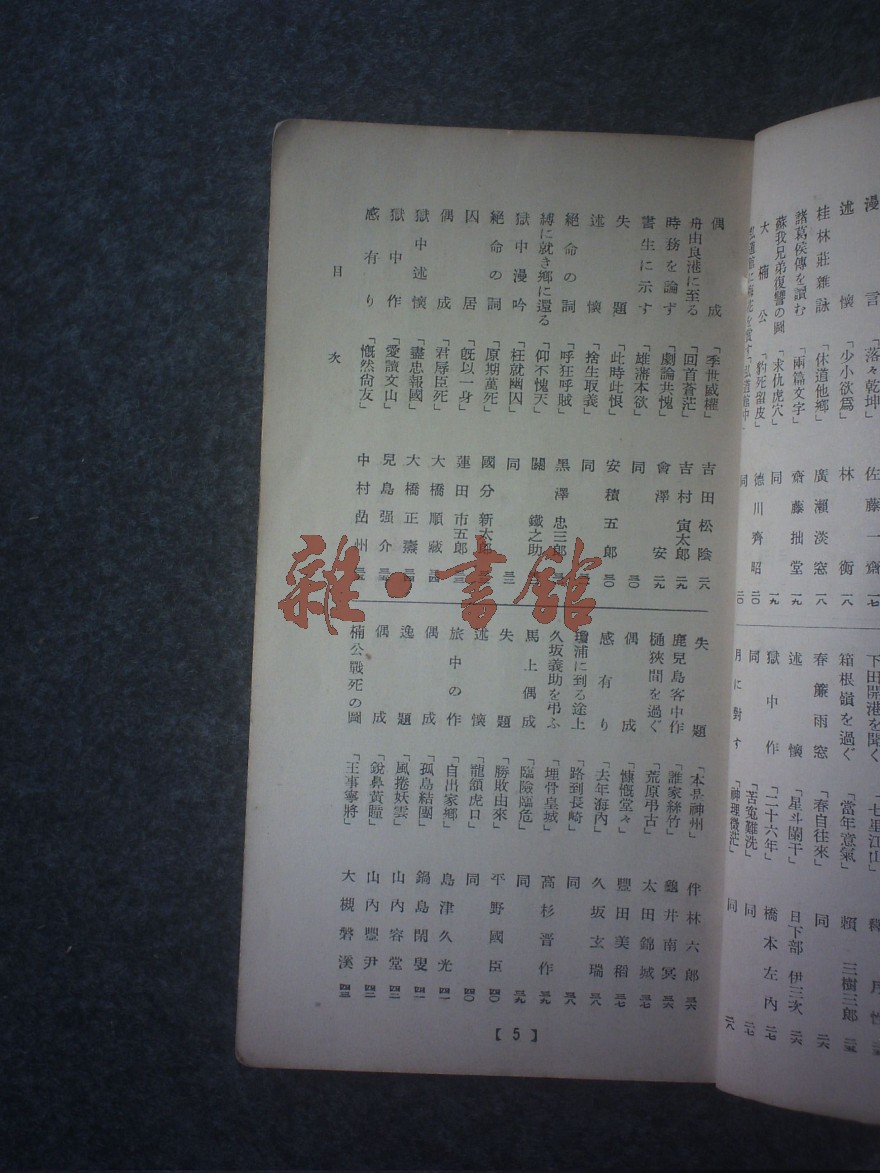 漫言「落々乾坤」佐藤一齋 一七
述懷「少小欲爲」林衡 一八
桂林莊雜詠「休道他鄕」廣瀨淡窓 一八
諸葛侯傳を讀む「兩篇文字」齋藤拙堂 一九
蘇我兄弟復讐の圖「求仇虎穴」同 一九
大楠公「豹死留皮」德川齊昭 二〇
同 二〇
下田開港を聞く「七里江山」釋月性
箱根嶺を過ぐ「當年意氣」賴三樹三郎 二五
春簾雨窓「春自往來」同 二六
述懷「星斗闌干」日下部伊三次 二六
獄中作「二十六年」橋本左內 二七
同「苦冤難洗」同 二七
月に對す「神理微茫」同 二八
偶成「季世威權」吉田松陰 二八
舟由良港に至る「回首蒼茫」吉村寅太郎 二九
時務を論ず「劇論共愧」會澤安 二九
書生に示す「雄滸本欲」同 三〇
失題「此時此恨」安積五郎 三〇
述懷「捨生取義」同 三一
絕命の詞「呼狂呼賊」黑澤忠三郎
縛に就き鄕に還る「仰不愧天」關鐵之助
獄中漫吟「枉就幽囚」同 三二
絕命の詞「原期萬死」國分新太郎
囚居「旣以一身」蓮田市五郎 三三
偶成「君辱臣死」大橋順藏 三四
獄中述懷「盡忠報國」大橋正燾 三四
獄中作「愛讀文山」兒島强介
感有り「慨然尙友」中村嵓州
失題「本是神州」伴林六郎 三六
鹿兒島客中作「誰家絲竹」龜井南冥 三六
樋狹間を過ぐ「荒原弔古」太田錦城 三七
偶成「慷慨堂々」豐田美稻 三七
感有り「去年海內」久坂玄瑞 三八
瓊浦に到る途上「路到長崎」同 三八
久坂義助を弔ふ「埋骨皇城」高杉晋作 三九
馬上偶成「臨險臨危」同 三九
失題「勝敗由來」平野國臣 四〇
述懷「龍頷虎口」同 四〇
旅中の作「自出家鄕」島津久光 四一
偶成「孤島結團」鍋島閑叟 四一
逸題「風捲妖雲」山內容堂 四二
偶成「銳鼻黃瞳」山內豐尹 四二
楠公戰死の圖「王事寧將」大槻磐溪 四三
目次
【5】
雜·書館